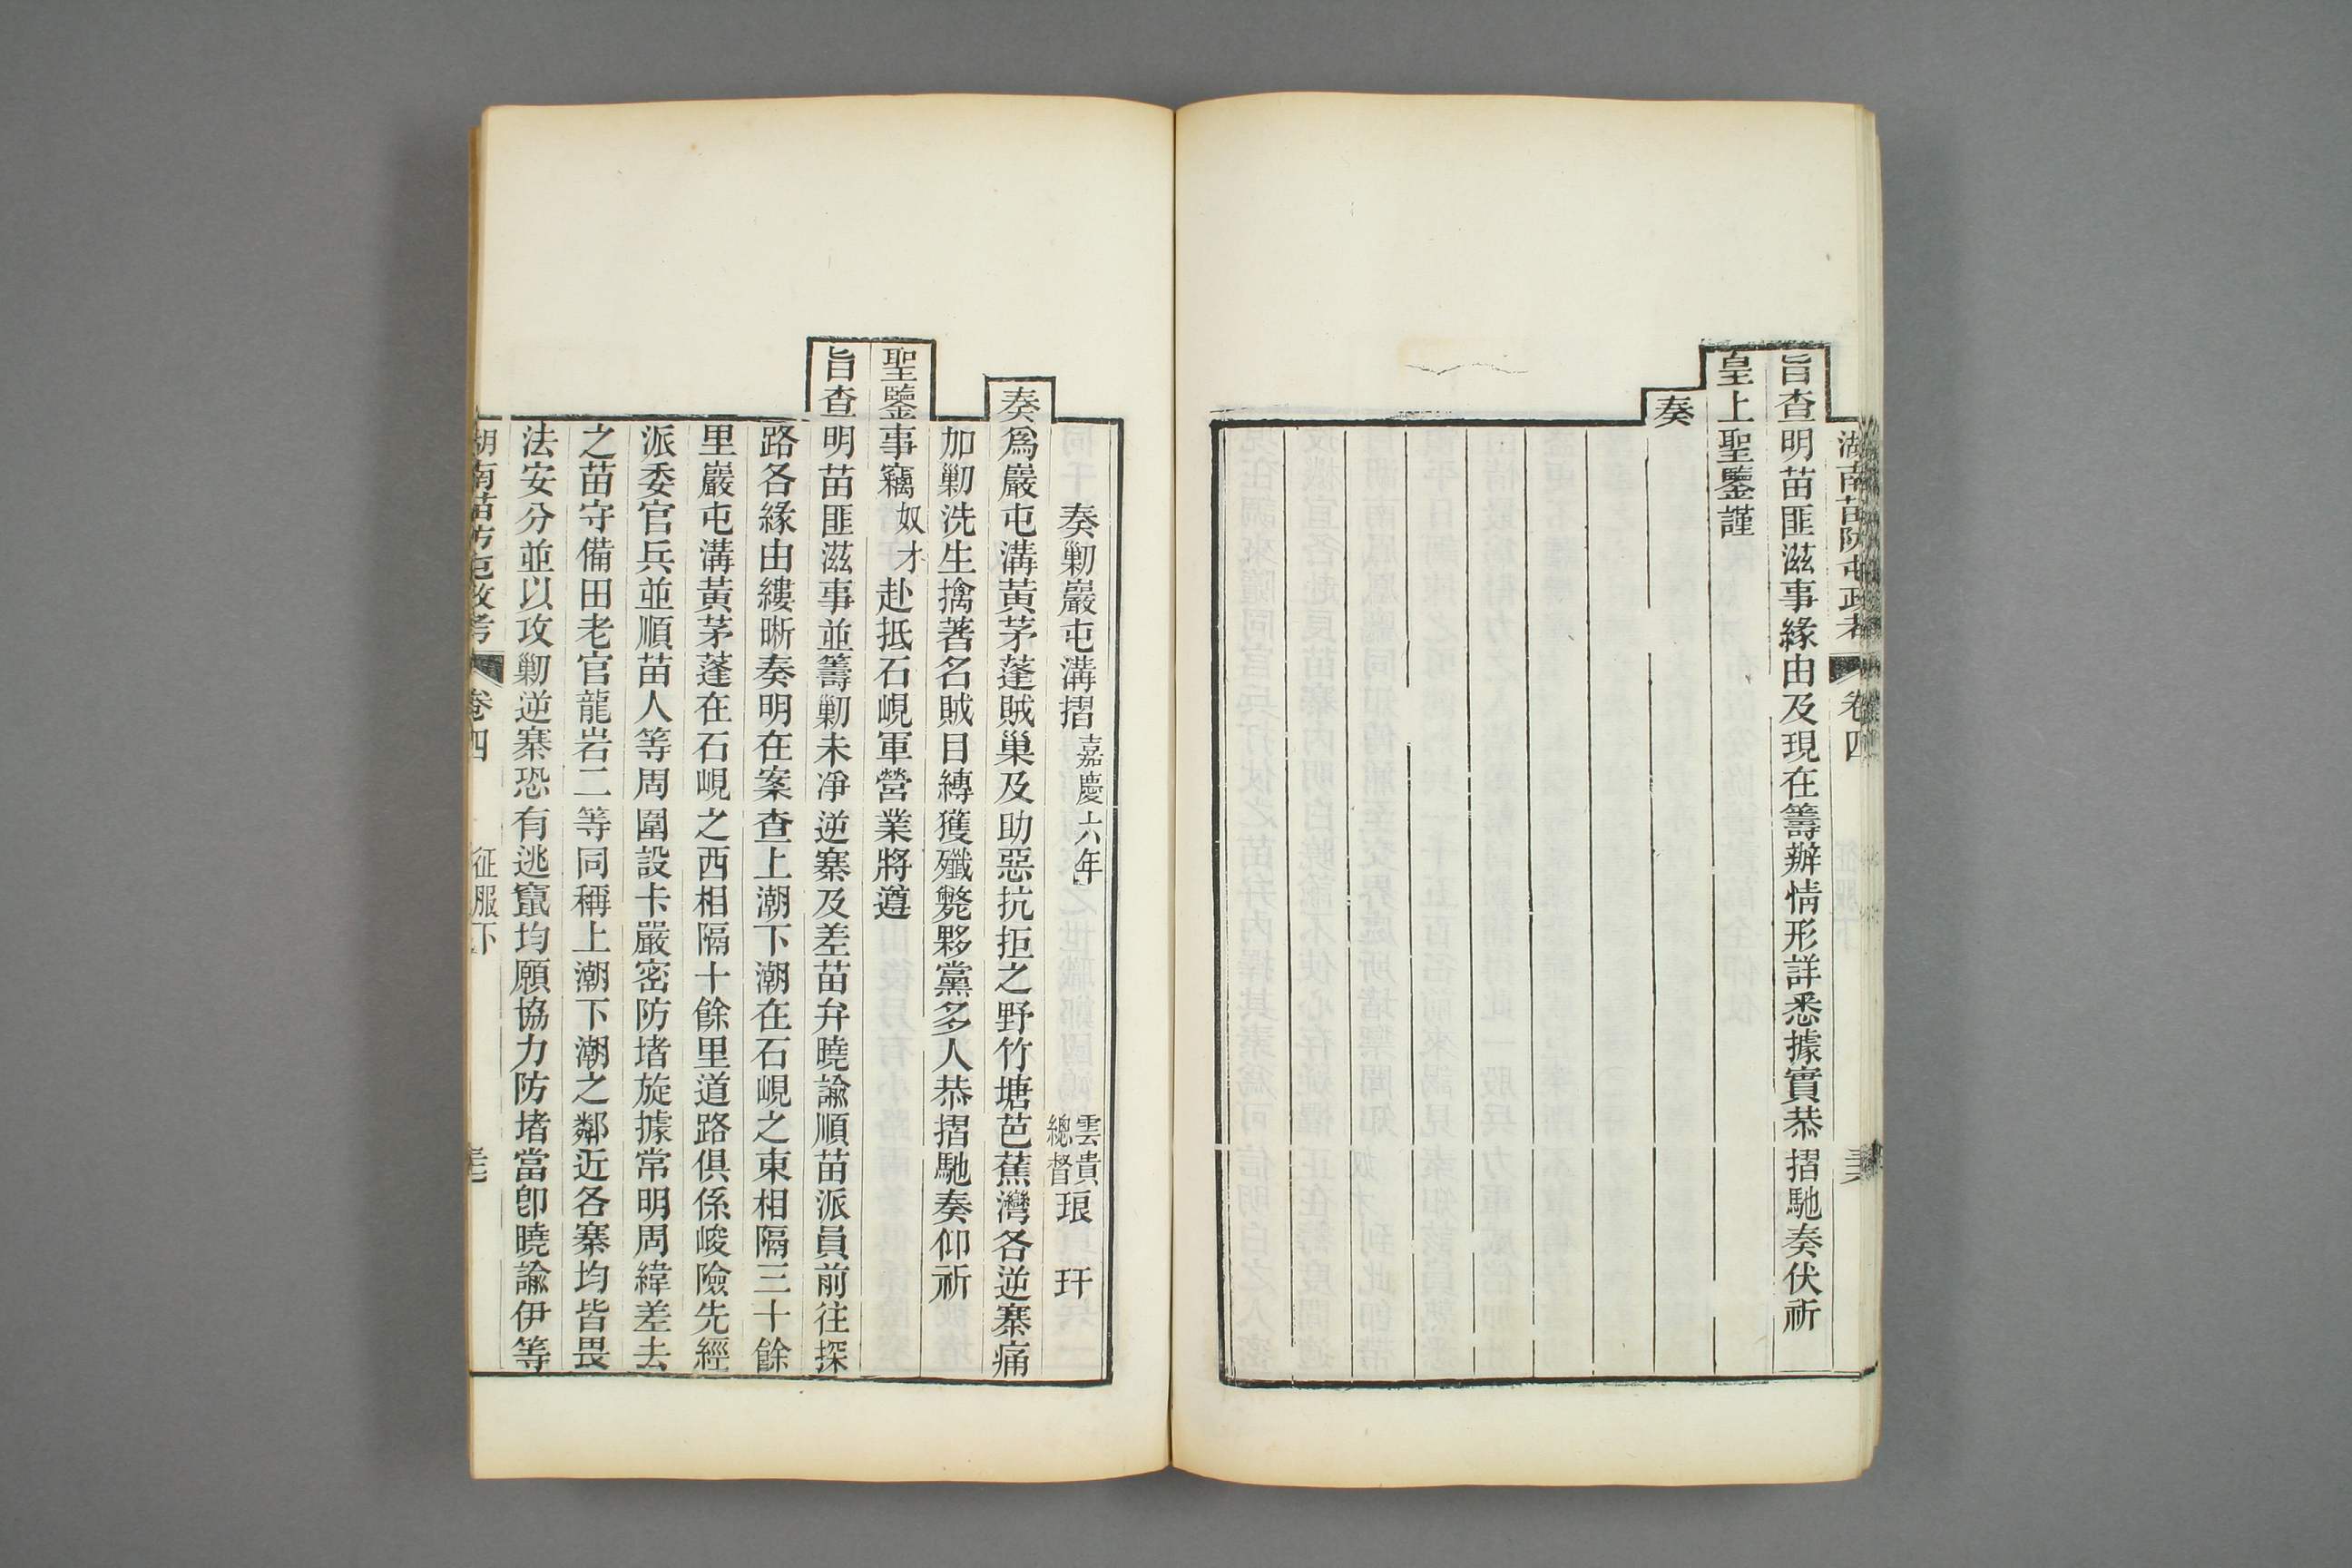 湖南苗防屯政考 卷四 三六
旨查明苗匪滋事緣由及現在籌辦情形詳悉據實恭摺馳奏伏祈
皇上聖鑒謹
奏
奏剿巖屯溝摺 嘉慶六年 雲貴總督琅玕
奏爲巖屯溝黃茅蓬賊巢及助惡抗拒之野竹塘芭蕉灣各逆寨痛
加剿洗生擒著名賊目縛獲殲斃夥黨多人恭摺馳奏仰祈
聖鑒事竊奴才赴抵石峴軍營業將遵
旨查明苗匪滋事並籌剿未淨逆寨及差苗弁曉諭順苗派員前往探
路各緣由縷晰奏明在案查上潮下潮在石峴之東相隔三十餘
里巖屯溝黃茅蓬在石峴之西相隔十餘里道路俱係峻險先經
派委官兵並順苗人等周圍設卡嚴密防堵旋據常明周緯差去
之苗守備田老官龍岩二等同稱上潮下潮之鄰近各寨均皆畏
法安分並以攻剿逆寨恐有逃竄均願協力防堵當卽曉諭伊等
湖南苗防屯政考 卷四 征服下 三七